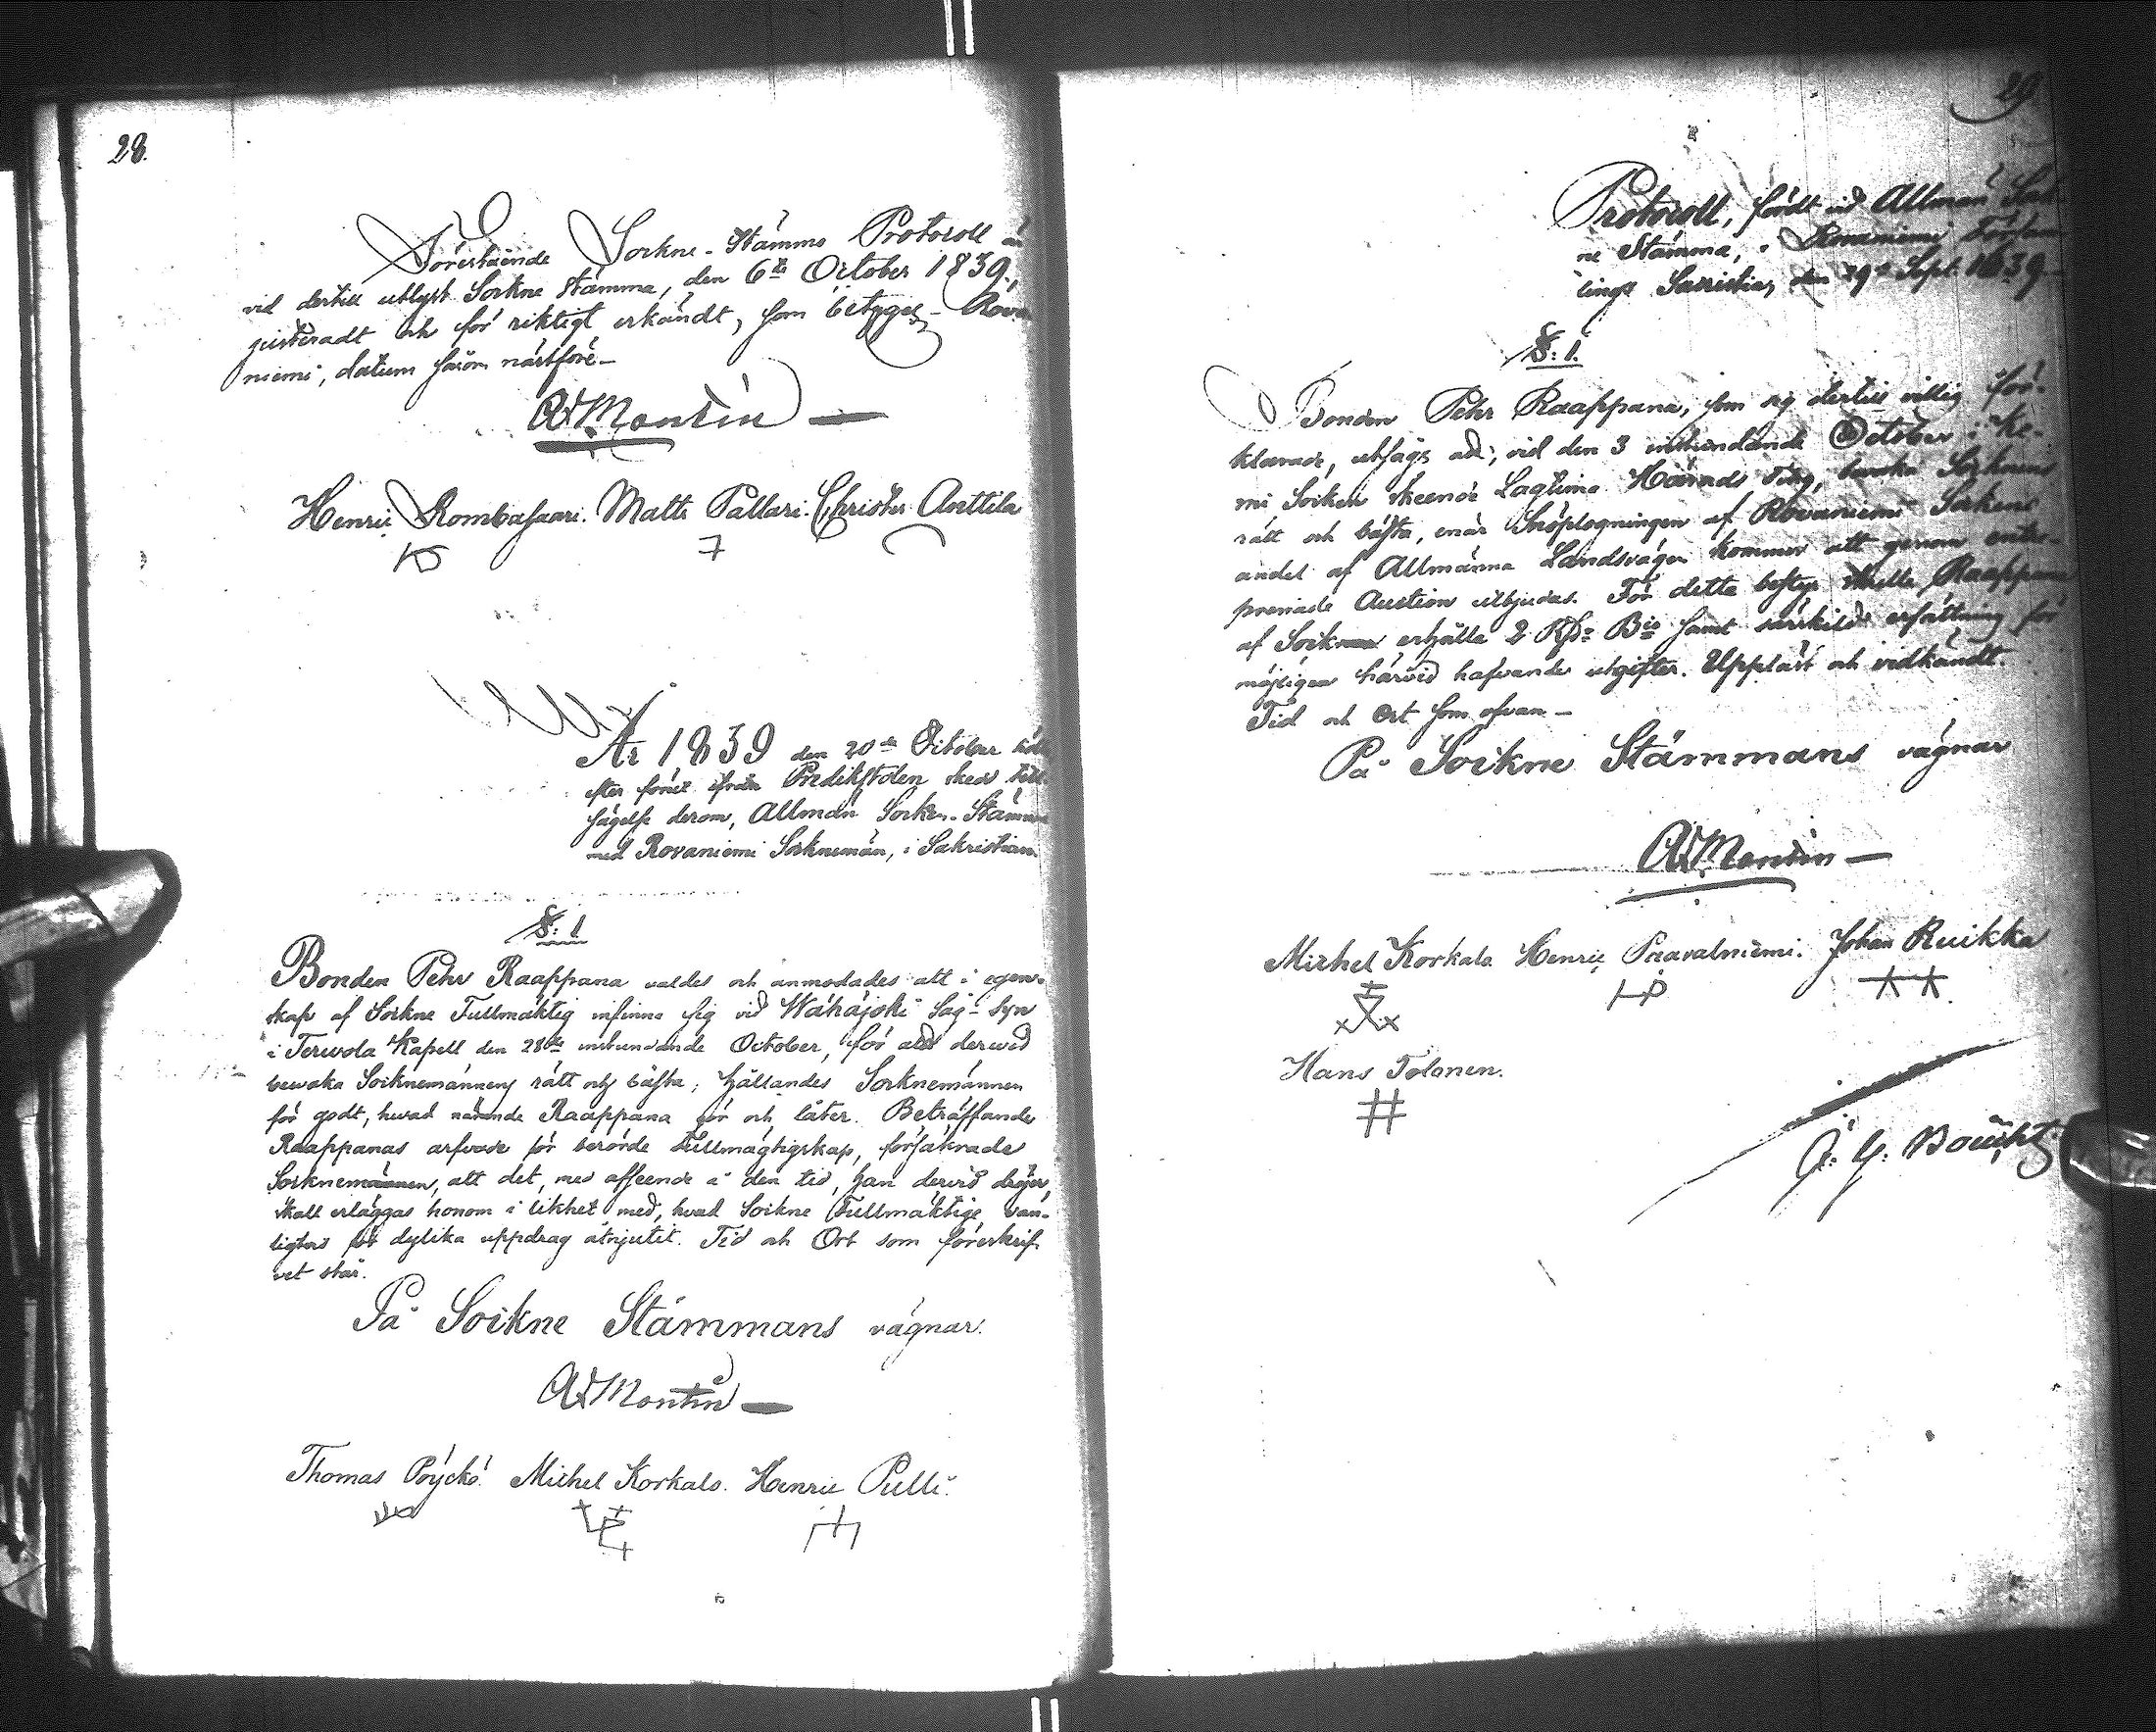 28.
Förestående Sockne-Stämmo Protocoll är
vid dertill utlyst Sockne Stämma, den 6te October 1839,
justeradt och för riktigt erkändt, som betygar Rova-
niemi, datum såsom nästföre—
A. Montin
Henric Rombasaari. Matti Pallari. Christer Anttila
År 1839 den 20de October hölls
efter förut ifrån Predikstolen sked till-
sägelse derom, Allmän Sockne-Stämma
med Rovaniemi Socknemän, i Sakristian.
§: 1
Bonden Pehr Raappana valdes och anmodades att i egen-
skap af Sockne Fullmäktig infinna sig vid Wähäjoki Såg-Syn
i Terwola Kapell den 28de instundande October, för att derwid
bewaka Socknemännens rätt och bästa; hållandes Socknemännen
för godt, hvad nämnde Raappana gör och låter. Beträffande
Raappanas arfvode för berörde Fullmägtigskap, försäkrade
Socknemännen, att det, med afseende å den tid, han dervid dröjer,
skall erläggas honom i likhet med, hvad Sockne Fullmäktige van-
ligtvis för dylika uppdrag åtnjutit. Tid och Ort som föreskrif-
vet står.
På Sockne Stämmans vägnar.
A. Montin
Thomas Pöyckö. Michel Korkalo. Henric Pulli.
29.
Protocoll, fördt vid Allmän Sock-
ne Stämma, i Rovaniemi
lings Sacristia, den 29de Sept. 1839.
§: 1.
Bonden Pehr Raappana, som sig dertill villig för-
klarade, utsågs att, vid den 3 instundande October i Ke-
mi Socken skeende Lagtima Härads Ting, bevaka Socknens
rätt och bästa, enär Snöplogningen af Rovaniemi Sockens
andel af Allmänna Landsvägen kommer att genom entre-
prenade Auction utbjudas. För dette bestyr skulle Raappana
af Socknen erhålla 2 Rub. Bco samt särskild ersättning för
möjligen härvid hafvande utgifter. Uppläst och vidkändt.
Tid och Ort som ofvan—
På Sockne Stämmans vägnar
A. Montin—
Michel Korkalo Henric Paavalniemi. Johan Ruikka
Hans Tolonen.